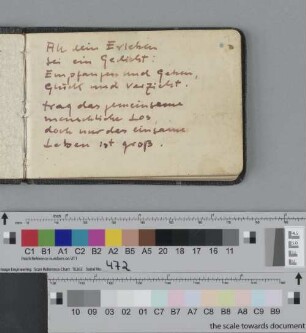 All dein Erleben
sei ein Gedicht:
Empfangen und Geben,
Glück und Verzicht.
trag das gemeinsame
menschliche Los,
doch nur das einsame
Leben ist groß.
C1 B1 A1 C2 B2 A2 B5 A5 20 18 17 16 11
472
10 09 03 02 01 C7 B7 A7 C8 B8 A8 C9 B9
the scale towards document